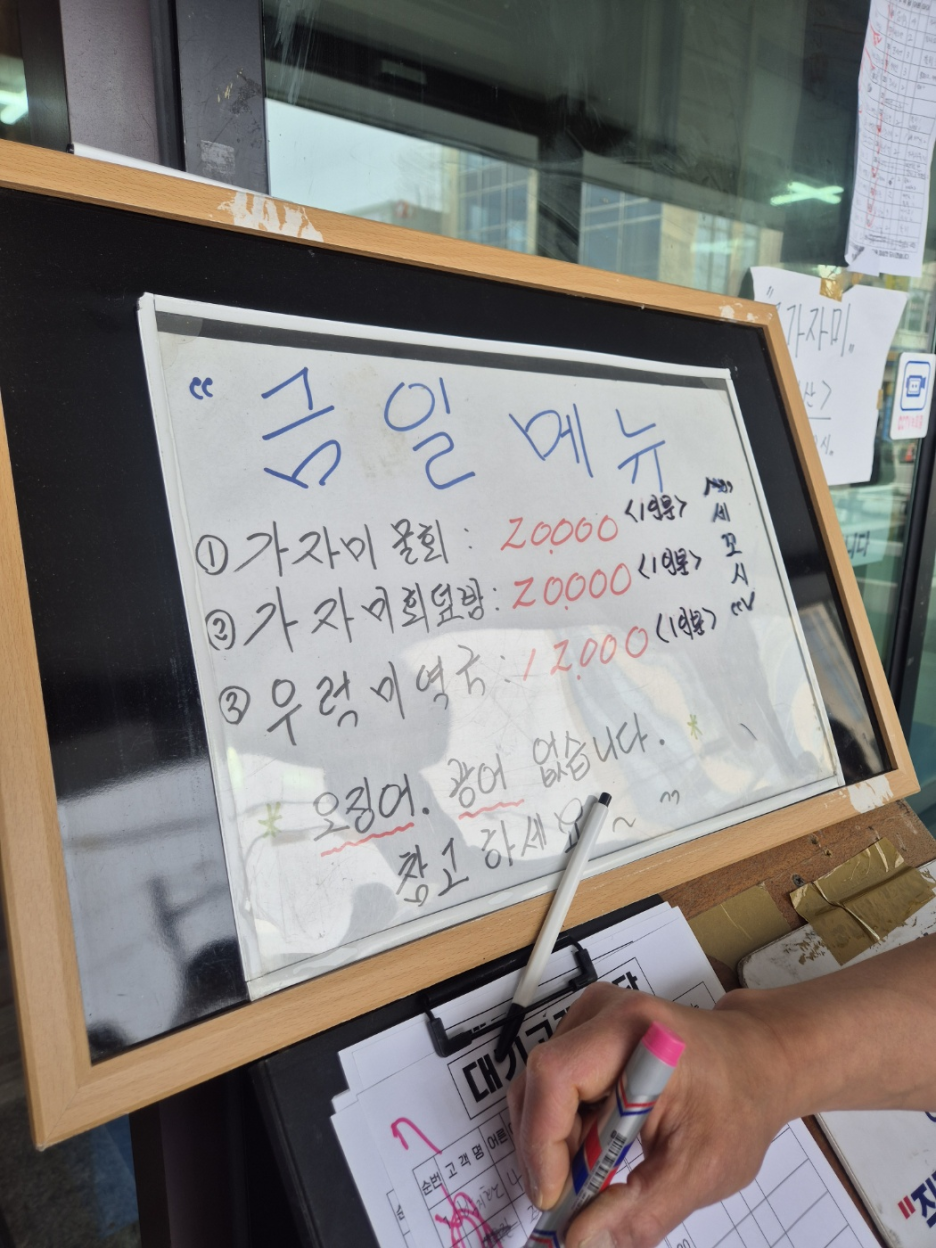 “ 금일 메뉴
① 가자미 물회 : 20.000 <1인분>
② 가자미회덮밥 : 20.000 <1인분>
③ 우럭미역국 : 12.000 <1인분>
세꼬시
* 오징어. 광어 없습니다. *
참고 하세요 ~ ”
"가자미"
대기고객
순번 고객명